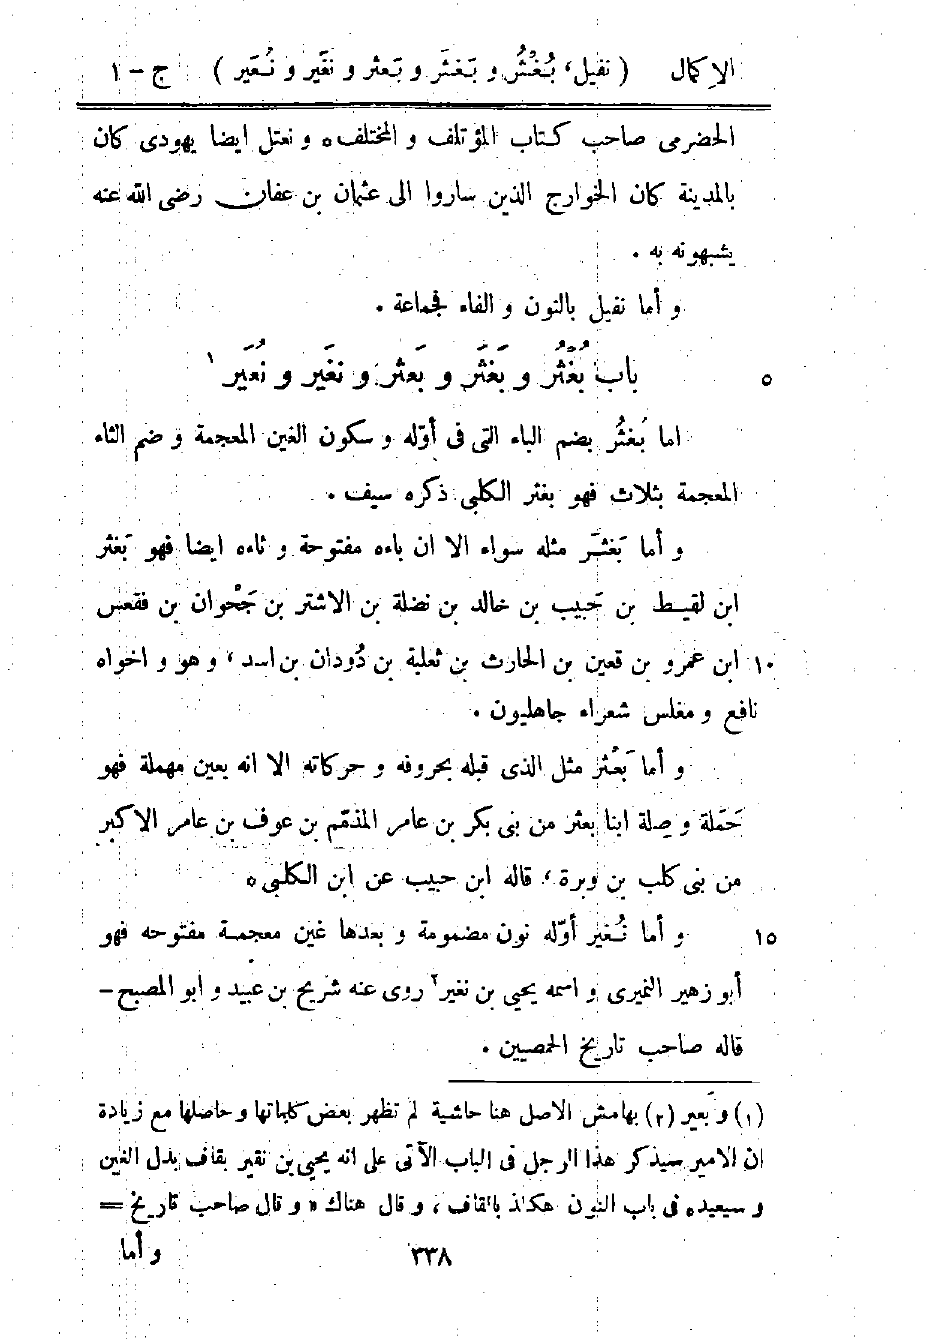 الإكمال ( نفيل، بُغْثُر و بَغثَر و بَعثر و نغَير و نُعَير ) ج - ١
الحضرمى صاحب كتاب المؤتلف و المختلف ٥ و نعثل ايضا يهودى كان
بالمدينة كان الخوارج الذين ساروا الى عثمان بن عفان رضى الله عنه
يشبهونه به .
و أما نفيل بالنون و الفاء فجماعة .
٥ باب بُغْثُر و بَغثَر و بَعثَر و نغَير و نُعَير ١
اما بُغثُر بضم الباء التى فى أوّله و سكون الغين المعجمة و ضم الثاء
المعجمة بثلاث فهو بغثر الكلبى ذكره سيف .
و أما بَغثَر مثله سواء الا ان باءه مفتوحة و ثاءه ايضا فهو بَغثر
ابن لقيط بن حَبيب بن خالد بن نضلة بن الاشتر بن جَحْوان بن فقعس
١٠ ابن عمرو بن قعين بن الحارث بن ثعلبة بن دُودان بن اسد، و هو و اخواه
نافع و مغلس شعراء جاهليون .
و أما بَعْثر مثل الذى قبله بحروفه و حركاته الا انه بعين مهملة فهو
حَمَلة و صِلة ابنا بعثر من بنى بكر بن عامر المذمّم بن عوف بن عامر الاكبر
من بنى كلب بن وبرة، قاله ابن حبيب عن ابن الكلبى ٥
١٥ و أما نُغَير أوّله نون مضمومة و بعدها غين معجمة مفتوحه فهو
أبو زهير النميرى و اسمه يحيى بن نغير ٢ روى عنه شريح بن عبيد و ابو المصبح -
قاله صاحب تاريخ الحمصيين .
(١) و بَعير (٢) بهامش الاصل هنا حاشية لم تظهر بعض كلماتها و حاصلها مع زيادة
ان الامير سيذكر هذا الرجل فى الباب الآتى على انه يحيى بن نقير بقاف بدل الغين
و سيعيده فى باب النون هكذا بالقاف، و قال هناك « و قال صاحب تاريخ =
٣٣٨ و أما